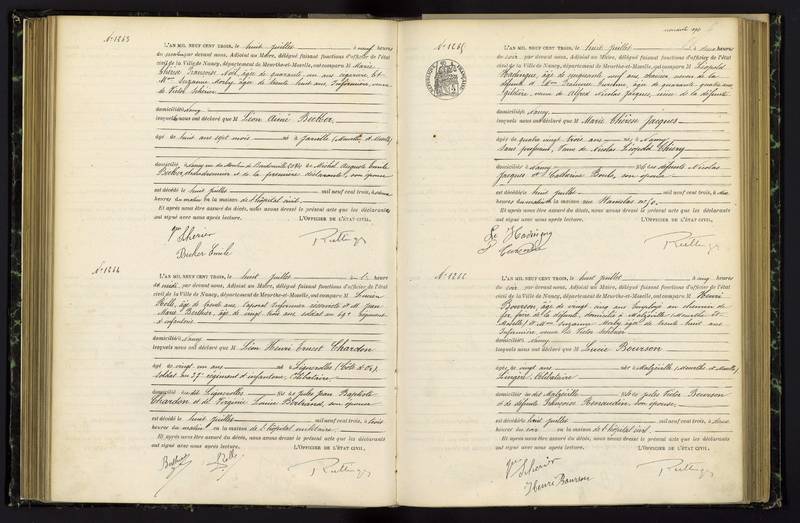 No 1263
L'AN MIL NEUF CENT TROIS, le huit juillet à neuf heures
du matin par devant nous, Adjoint au Maire, délégué faisant fonctions d'officier de l'état
civil de la Ville de Nancy, département de Meurthe-et-Moselle, ont comparu M Marie
Thérèse Françoise Noël, âgée de quarante un ans
Mme Suzanne Morly âgée de trente huit ans, Infirmière, veuve
de Victor Scherier
domiciliés à Nancy
lesquels nous ont déclaré que M Léon Aimé Becker
âgé de huit ans sept mois né à Jarville (Meurthe et Moselle)
domicilié à Nancy rue du Moulin de Boudonville de Michel Auguste Emile
Becker, et de la première déclarante, son épouse
est décédé le huit juillet mil neuf cent trois, à
heures du matin en la maison de l'hôpital civil
Et après nous être assuré du décès, nous avons dressé le présent acte que les déclarants
ont signé avec nous après lecture. L'OFFICIER DE L'ÉTAT CIVIL,
Vve Scherier
Becker Emile
No 1264
L'AN MIL NEUF CENT TROIS, le huit juillet à heure
de midi par devant nous, Adjoint au Maire, délégué faisant fonctions d'officier de l'état
civil de la Ville de Nancy, département de Meurthe-et-Moselle, ont comparu M Lucien
Rolle, âgé de trente ans, Caporal Infirmier réserviste et M Jean
Marie Berthier, âgé de vingt trois ans soldat au 69e régiment
d'infanterie
domiciliés à Nancy
lesquels nous ont déclaré que M Léon Henri Ernest Chardon
âgé de vingt un ans né à Lignerolles (Côte d'Or)
soldat au 37e régiment d'infanterie, Célibataire
domicilié au dit Lignerolles fils de Jules Jean Baptiste
Chardon et de Virginie Louise Bertrand, son épouse
est décédé le huit juillet mil neuf cent trois, à trois
heures du matin en la maison de l'hôpital militaire
Et après nous être assuré du décès, nous avons dressé le présent acte que les déclarants
ont signé avec nous après lecture. L'OFFICIER DE L'ÉTAT CIVIL,
Berthier Rolle
No 1265
L'AN MIL NEUF CENT TROIS, le huit juillet à deux heures
du soir, par devant nous, Adjoint au Maire, délégué faisant fonctions d'officier de l'état
civil de la Ville de Nancy, département de Meurthe-et-Moselle, ont comparu M Léopold
âgé de cinquante neuf ans, neveu de la
défunte et âgée de quarante quatre ans
veuve de Alfred Nicolas Jacques, nièce de la défunte
domiciliés à Nancy
lesquels nous ont déclaré que M Marie Thérèse Jacques
âgée de quatre vingt trois ans née à Nancy
sans profession, Veuve de Nicolas Léopold Thiery
domiciliée à Nancy fille des défunts Nicolas
Jacques et Catherine son épouse
est décédée le huit juillet mil neuf cent trois, à
heures du matin en la maison rue Stanislas no 70
Et après nous être assuré du décès, nous avons dressé le présent acte que les déclarants
ont signé avec nous après lecture. L'OFFICIER DE L'ÉTAT CIVIL,
RÉPUBLIQUE FRANÇAISE
No 1266
L'AN MIL NEUF CENT TROIS, le huit juillet à cinq heures
du soir par devant nous, Adjoint au Maire, délégué faisant fonctions d'officier de l'état
civil de la Ville de Nancy, département de Meurthe-et-Moselle, ont comparu M Henri
Bourson, âgé de vingt cinq ans Employé au chemin de
fer frère de la défunte, domicilié à Malzéville (Meurthe et
Moselle) et Mme Suzanne Morly âgée de trente huit ans
Infirmière, veuve de Victor Scherier
domiciliée à Nancy
lesquels nous ont déclaré que M Lucie Bourson
âgée de vingt ans née à Malzéville (Meurthe et Moselle)
Lingère, Célibataire
domiciliée au dit Malzéville fille de Jules Victor Bourson
et de défunte Françoise Renaudin son épouse
est décédée le huit juillet mil neuf cent trois, à deux
heures du soir en la maison de l'hôpital civil
Et après nous être assuré du décès, nous avons dressé le présent acte que les déclarants
ont signé avec nous après lecture. L'OFFICIER DE L'ÉTAT CIVIL,
Vve Scherier
Henri Bourson